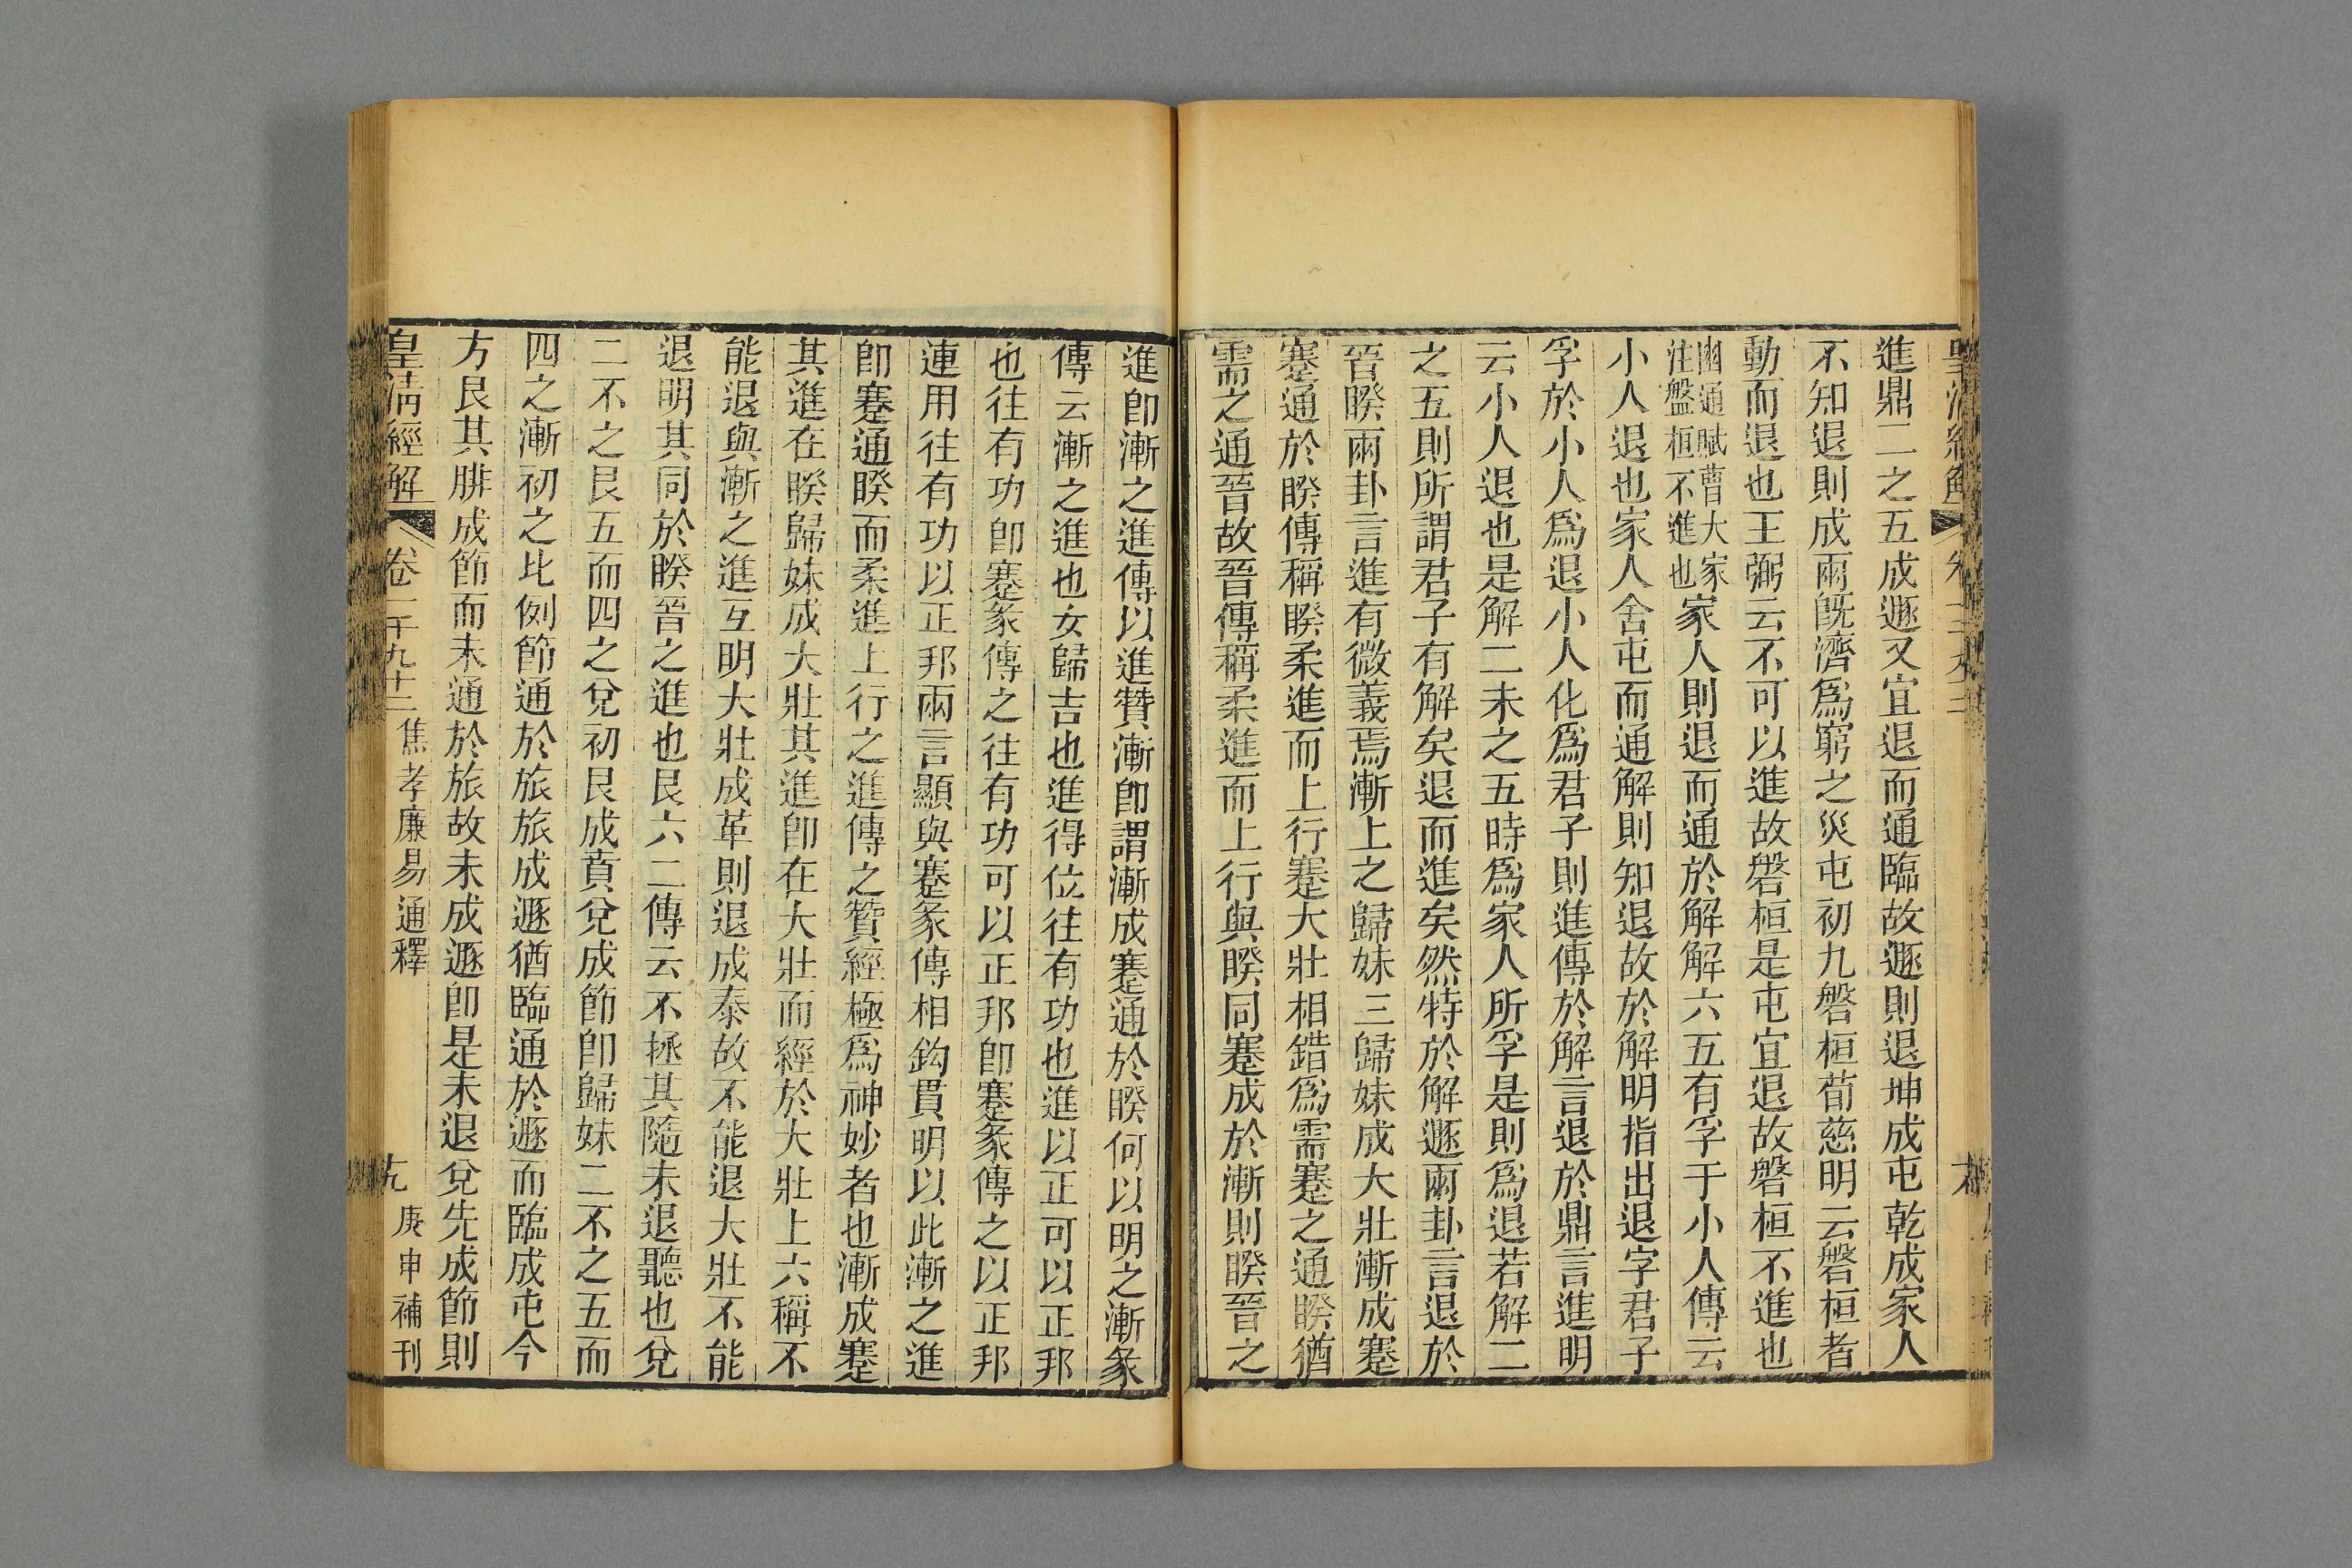 進鼎二之五成遯又宜退而通臨故遯則退坤成屯乾成家人
不知退則成兩旣濟爲窮之災屯初九磐桓荀慈明云磐桓者
動而退也王弼云不可以進故磐桓是屯宜退故磐桓不進也
幽通賦曹大家
注盤桓不進也
家人則退而通於解解六五有孚于小人傳云
小人退也家人舍屯而通解則知退故於解明指出退字君子
孚於小人爲退小人化爲君子則進傳於解言退於鼎言進明
云小人退也是解二未之五時爲家人所孚是則爲退若解二
之五則所謂君子有解矣退而進矣然特於解遯兩卦言退於
晉睽兩卦言進有微義焉漸上之歸妹三歸妹成大壯漸成蹇
蹇通於睽傳稱睽柔進而上行蹇大壯相錯爲需蹇之通睽猶
需之通晉故晉傳稱柔進而上行與睽同蹇成於漸則睽晉之
進卽漸之進傳以進贊漸卽謂漸成蹇通於睽何以明之漸彖
傳云漸之進也女歸吉也進得位往有功也進以正可以正邦
也往有功卽蹇彖傳之往有功可以正邦卽蹇彖傳之以正邦
連用往有功以正邦兩言顯與蹇彖傳相鈎貫明以此漸之進
卽蹇通睽而柔進上行之進傳之贊經極爲神妙者也漸成蹇
其進在睽歸妹成大壯其進卽在大壯而經於大壯上六稱不
能退與漸之進互明大壯成革則退成泰故不能退大壯不能
退明其同於睽晉之進也艮六二傳云不拯其隨未退聽也兌
二不之艮五而四之兌初艮成賁兌成節卽歸妹二不之五而
四之漸初之比例節通於旅旅成遯猶臨通於遯而臨成屯今
方艮其腓成節而未通於旅故未成遯卽是未退兌先成節則
皇清經解 卷一千九十二 焦孝廉易通釋 九 庚申補刊